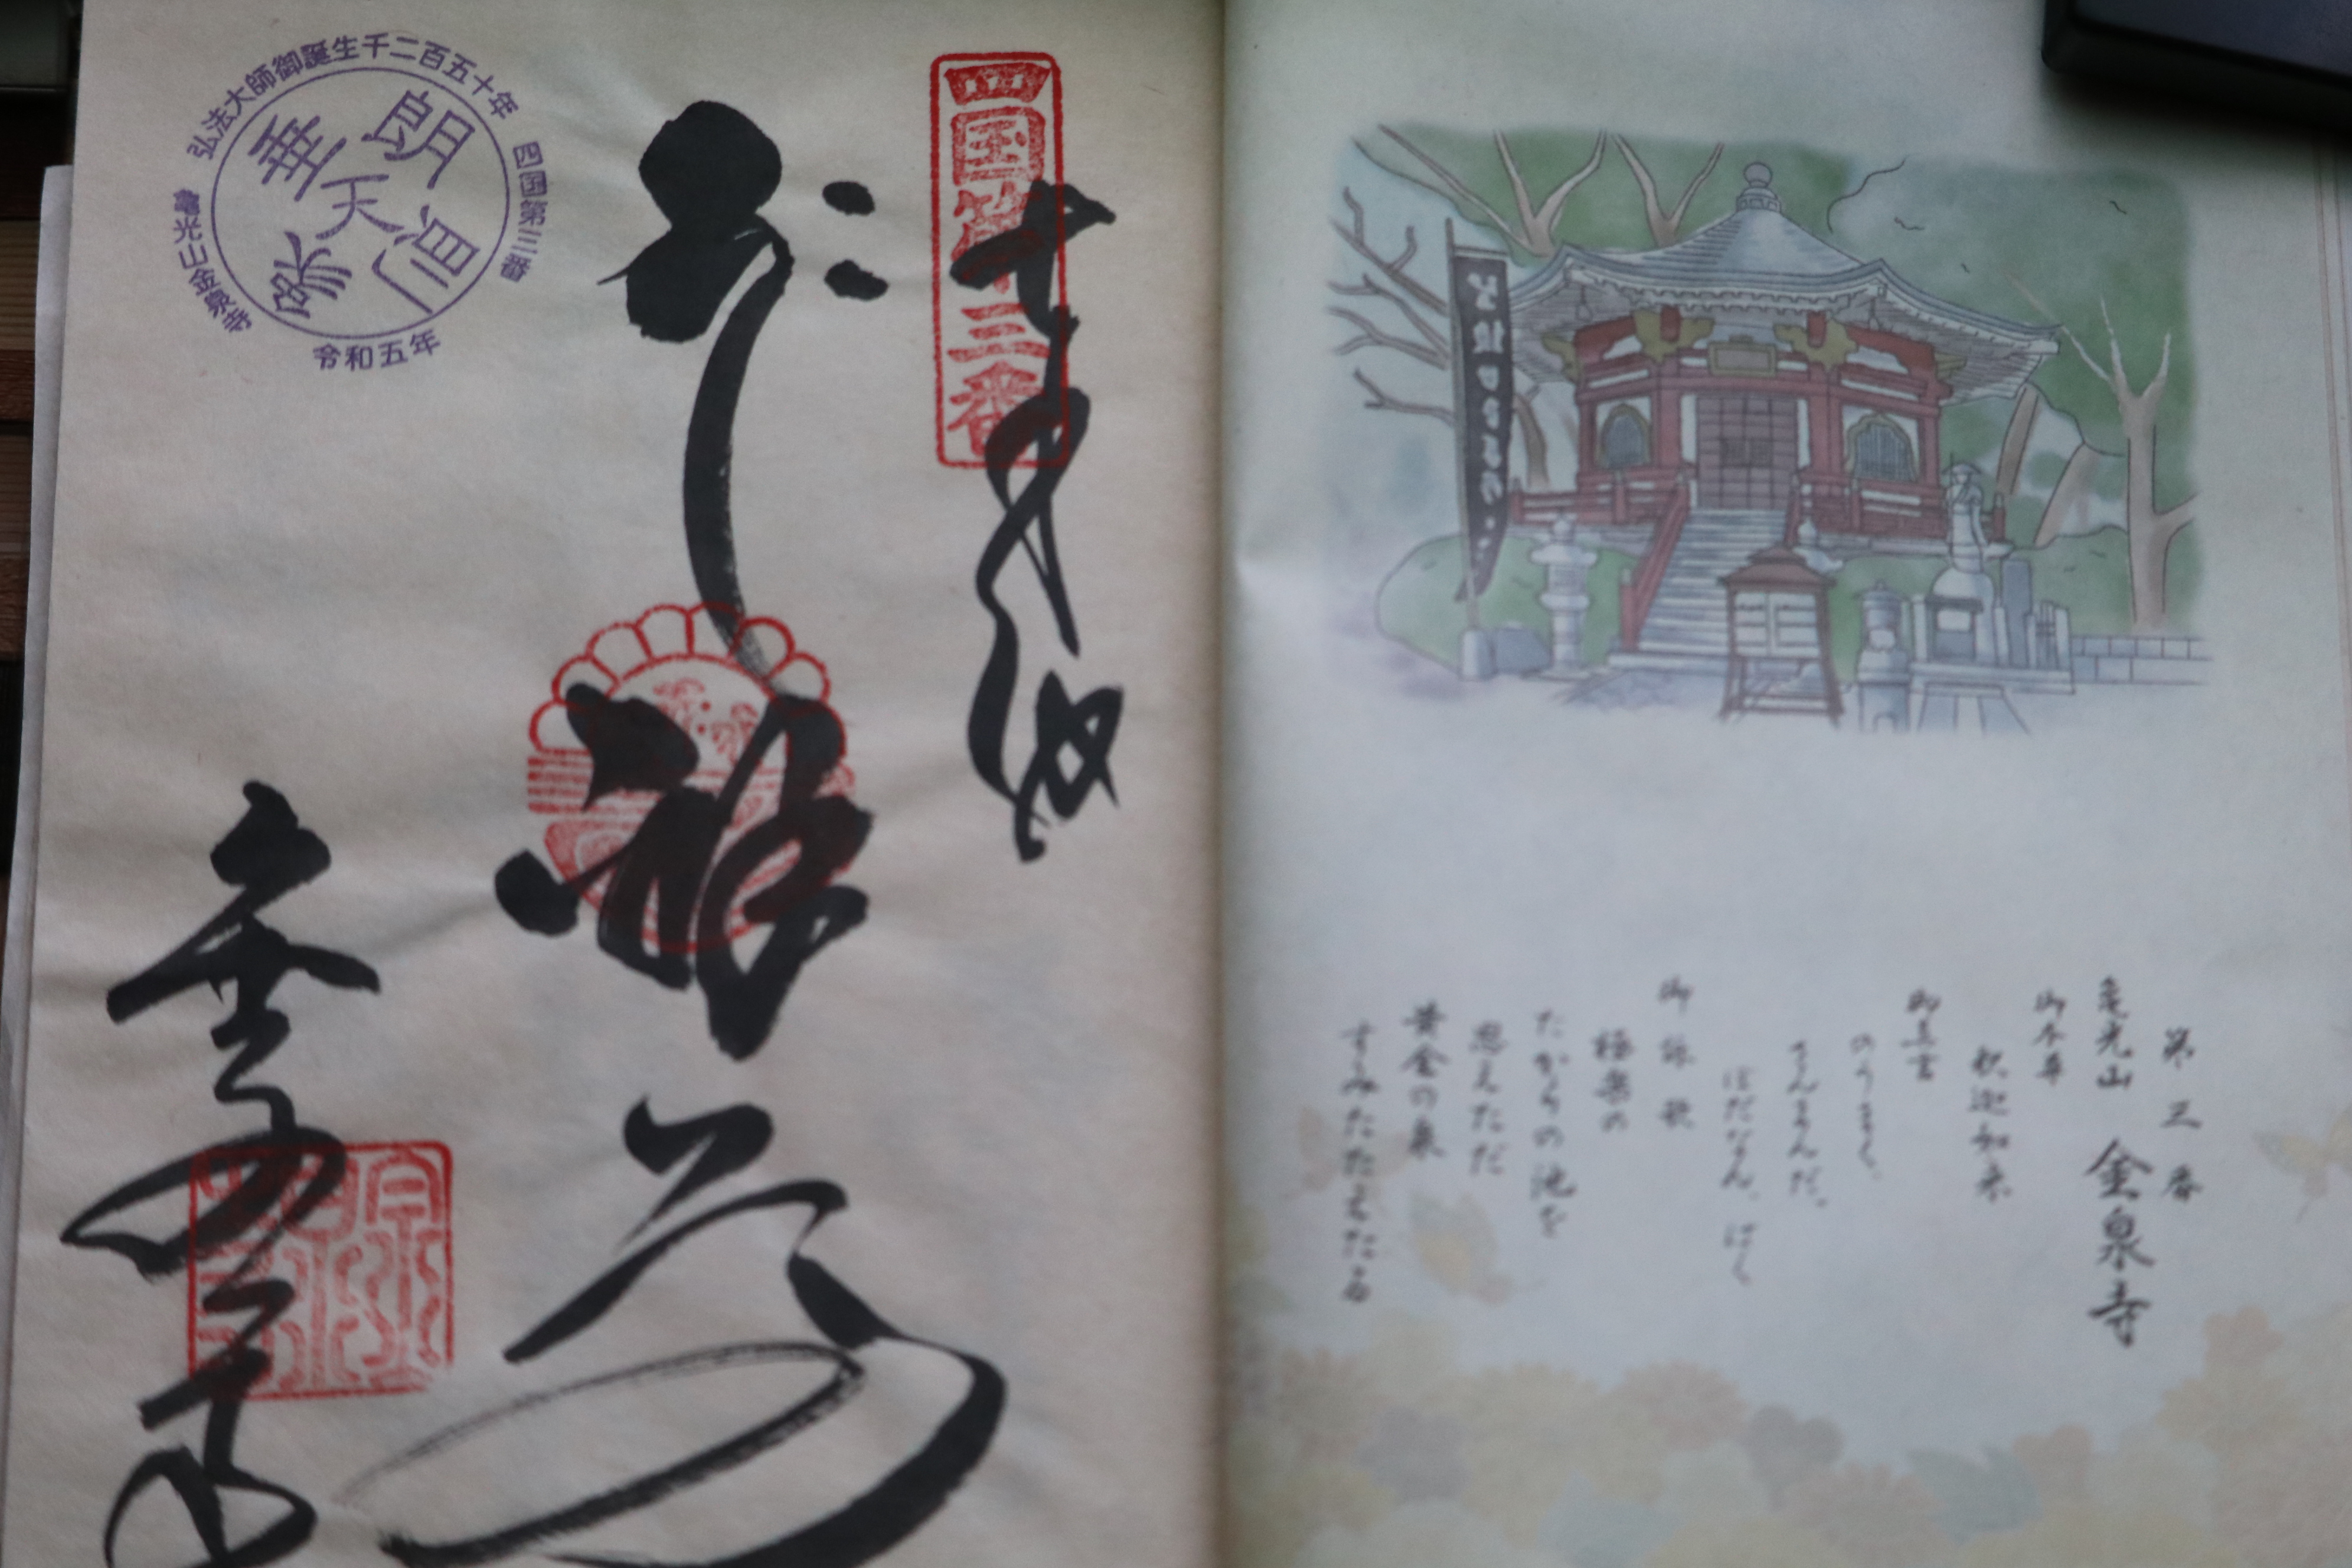 第三番
亀光山 金泉寺
御本尊
釈迦如来
御真言
のうまく、
さんまんだ、
ぼだなん、ばく
御詠歌
極楽の
たからの池を
思えただ
黄金の泉
すみたたえたる
四国第三番
奉納
金泉寺
弘法大師御誕生千二百五十年
四国第三番
龜光山金泉寺
令和五年